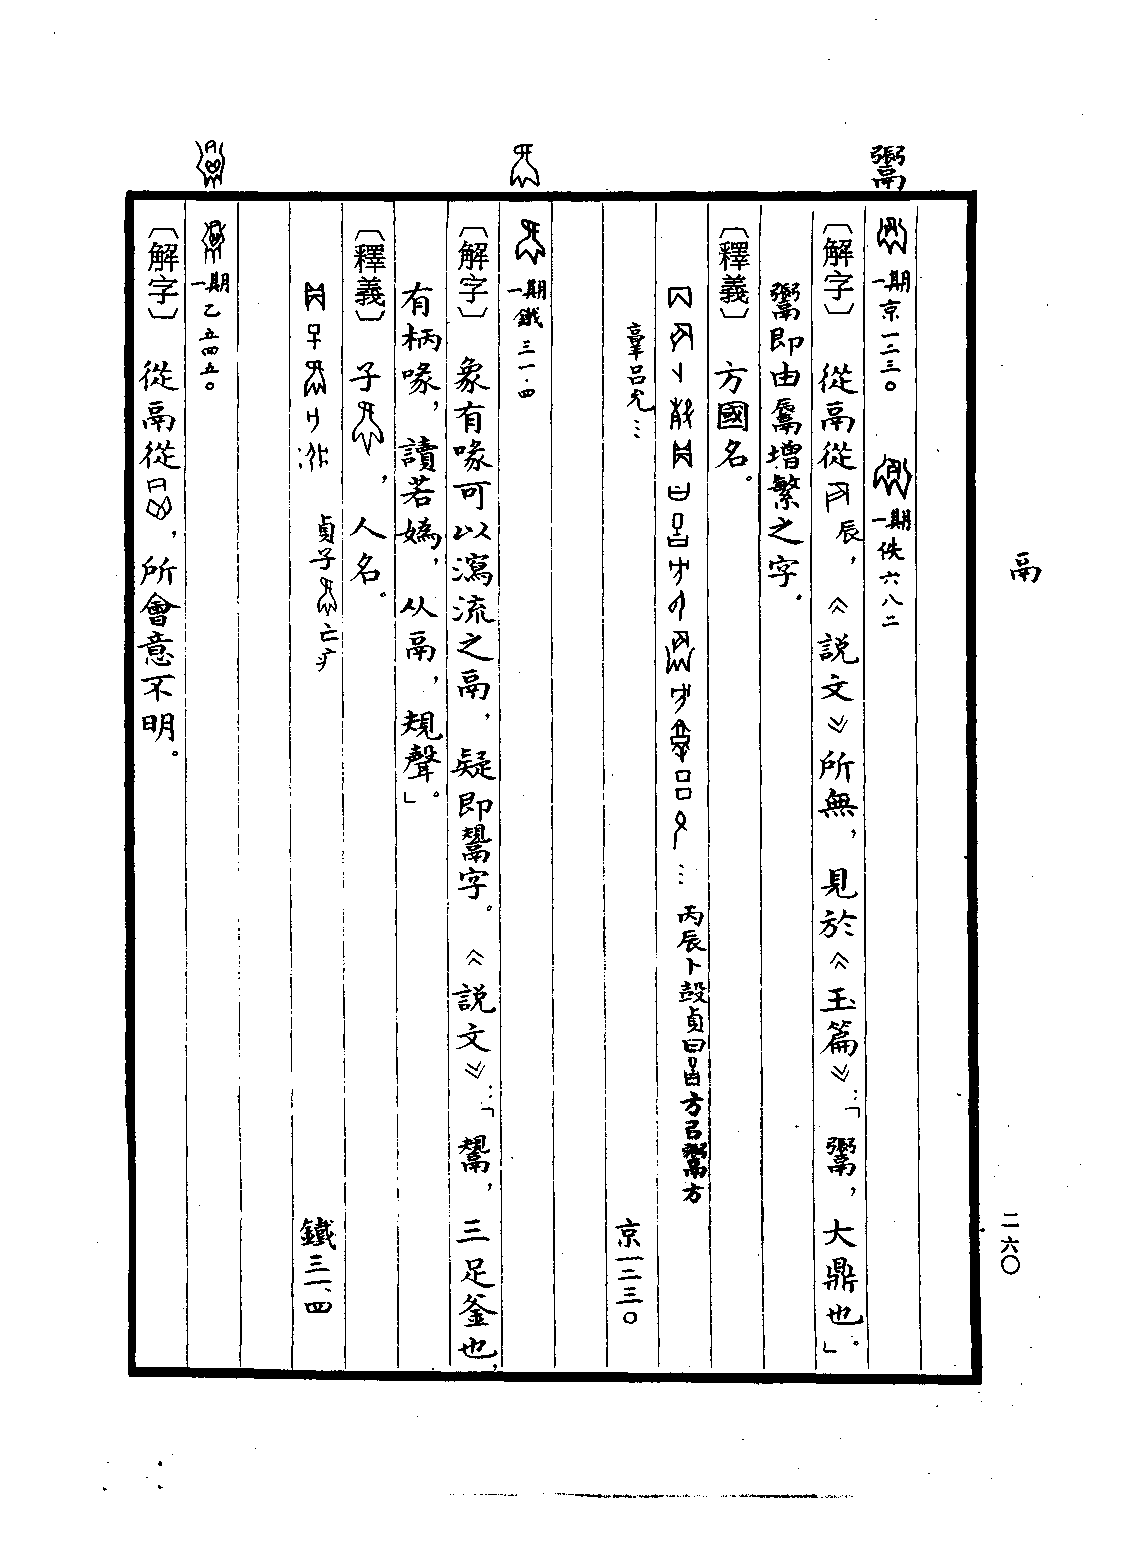 鬲
二六〇
一期京一二三〇 一期佚六八二
〔解字〕 從鬲從辰，《説文》所無，見於《玉篇》：「 ，大鼎也。」
即由 增繁之字。
〔釋義〕 方國名。
丙辰卜㱿貞曰𢀛方㠯 方
𦎫呂允… 京一二三〇
一期鐵三一·四
〔解字〕 象有喙可以瀉流之鬲，疑即鬹字。《説文》：「鬹，三足釜也，
有柄喙，讀若嬀，从鬲，規聲。」
〔釋義〕 子 ，人名。
貞子 亡疒 鐵三一·四
一期乙五四五〇
〔解字〕 從鬲從 ，所會意不明。